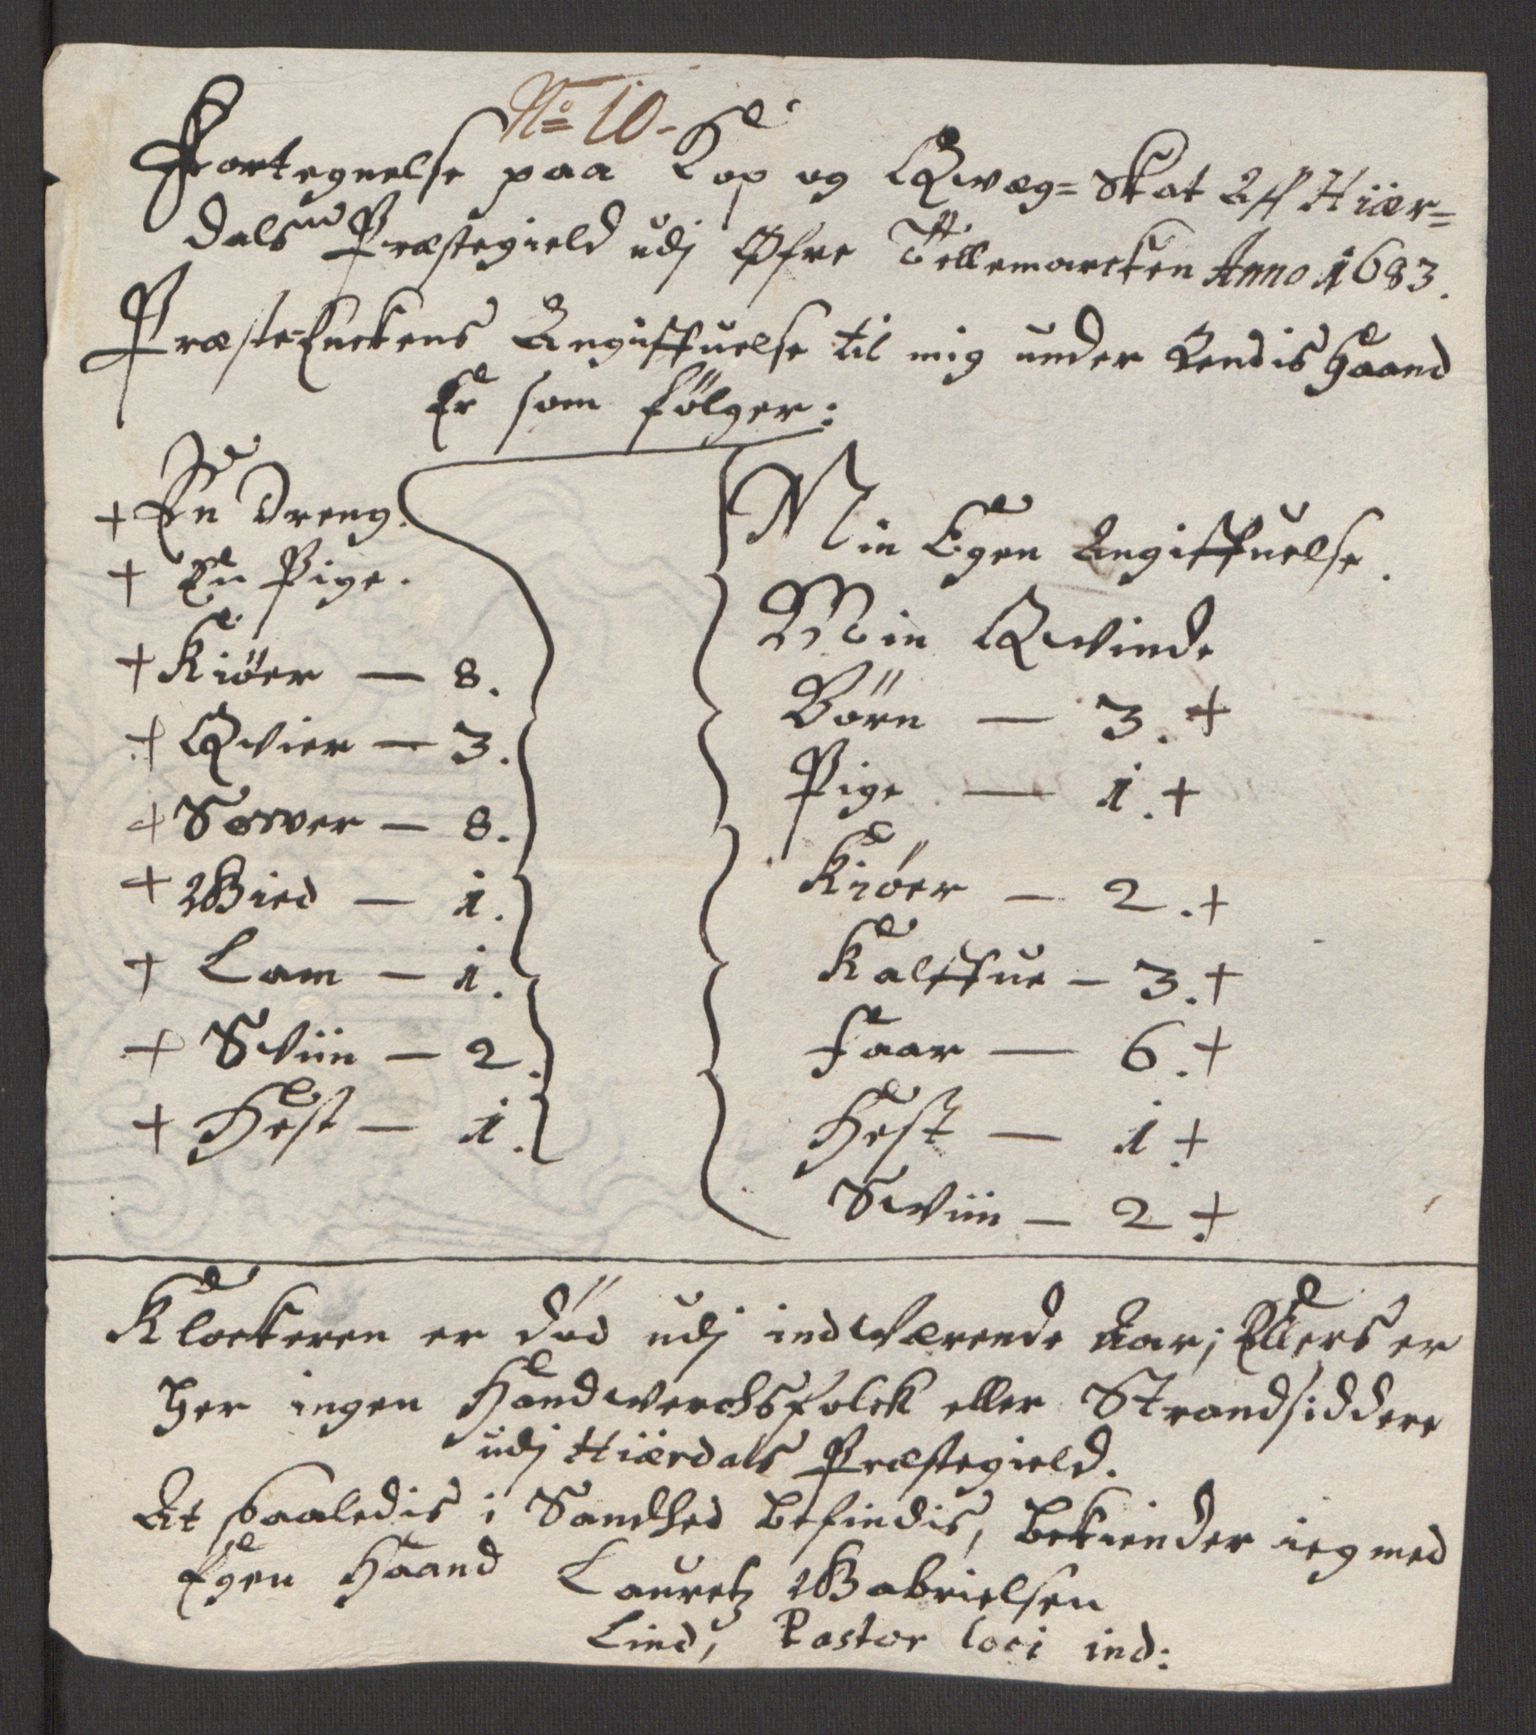 No 10.
Fortegnelse paa Kop og Qwæg= Skat Aff Hiær=
dals Præstegield udj Øfre Tellemarcken Anno 1683.
Præste=Enckens Angiffuelse til mig under Hendis Haand
Er som følger:
+ En Dreng.
+ En Pige.
+ Kiöer — 8.
+ Qvier — 3.
+ Sower — 8.
+ Gied — 1.
+ Lam — 1.
+ Sviin — 2.
+ Hest — 1.
Min Egen Angiffuelse.
Min Qvinde
Börn — 3. +
Pige — 1. +
Kiöer — 2. +
Kalffue — 3. +
Faar — 6. +
Hest — 1. +
Sviin — 2. +
Klockeren er död udj indværende Aar; Ellers er
her ingen Handwerchsfolck eller Strandsiddere
udj Hiærdals Præstegield.
At saaledis i Sandhed befindis, bekiender ieg med
Egen Haand Lauretz Gabrielsen
Lind, Pastor loci ind: